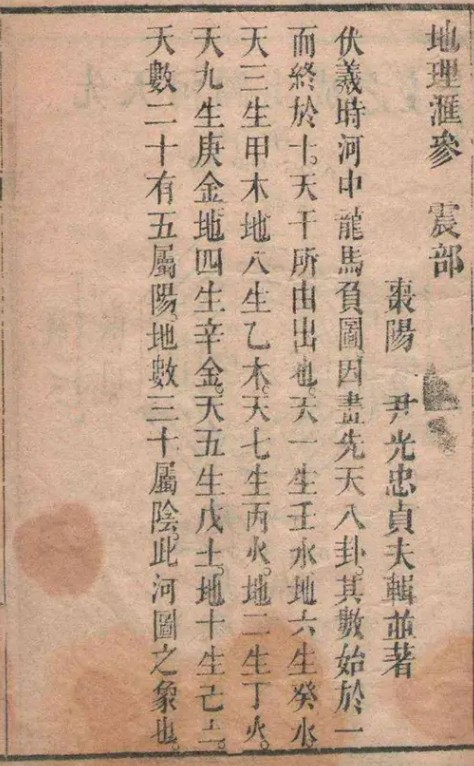 地理滙參　震部
棗陽　尹光忠貞夫輯並著
伏羲時河中龍馬負圖因畫先天八卦。其數始於一
而終於十。天干所由出也。天一生壬水地六生癸水。
天三生甲木地八生乙木。天七生丙火。地二生丁火。
天九生庚金。地四生辛金。天五生戊土。地十生己土。
天數二十有五屬陽。地數三十屬陰。此河圖之象也。